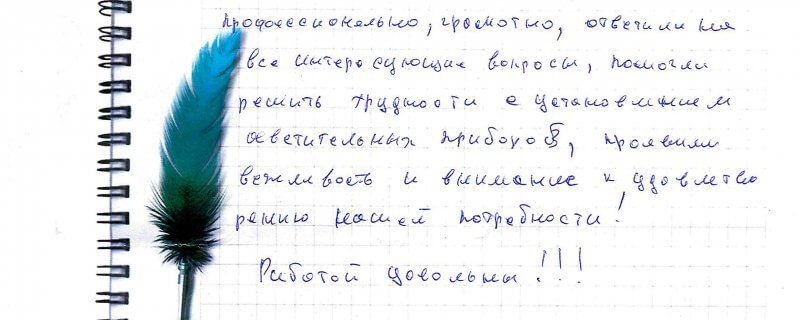 профессионально, грамотно, ответили на
все интересующие вопросы, помогли
решить трудности с установлением
осветительных приборов, проявили
вежливость и внимание к удовлетво
рению нашей потребности!
Работой довольны!!!